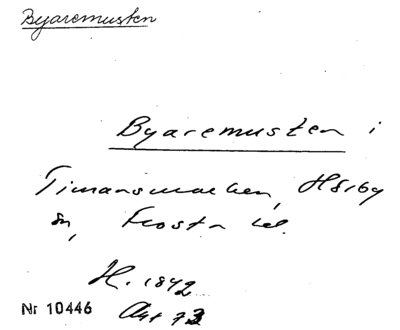 Byaremusten
Byaremusten i
Timansmarken, Hörby
sn, Frosta hd.
H. 1842
Akt 73
Nr 10446